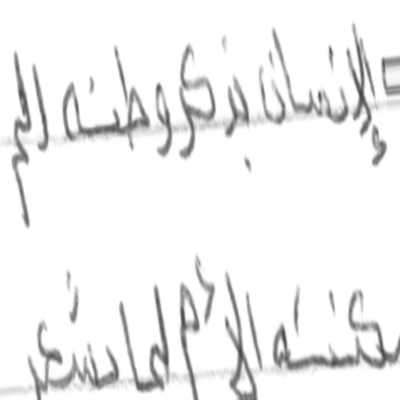 الإنسان بذكر وطنه الم
كنته الأم لما بشعر